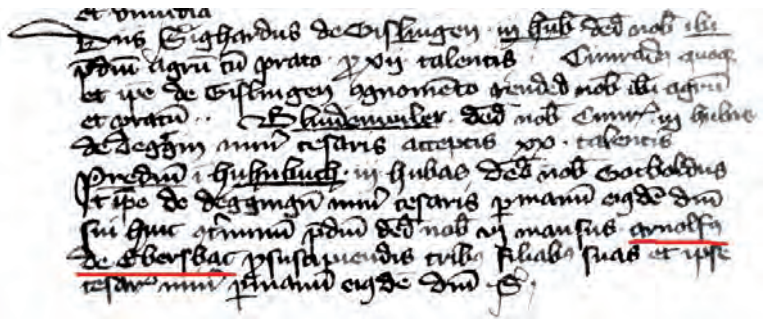 et dimidia
Dns Sighardus de Gislingen · iij hub ded nob ibi
pdiu agru cu prato · p xij talentis · Cunradus quoq
et ipe de Gislingen cognomento vended nob ibi agru
et pratu ·· Blindewiler · ded nob Cunr · iij hubas
de Deggin minr cesaris acceptis xx · talentis
Prediu i huhnbuch · iij hubas ded nob Gotboldus
et ipe de deggingn minr cesaris p manu eiusde dni
sui huic pdiu ded nob vj mansus Arnolfus
de Ebersbac p suscipiendis tribus filiabus suas et ipse
cesaris minr p manu eiusde dni S ·